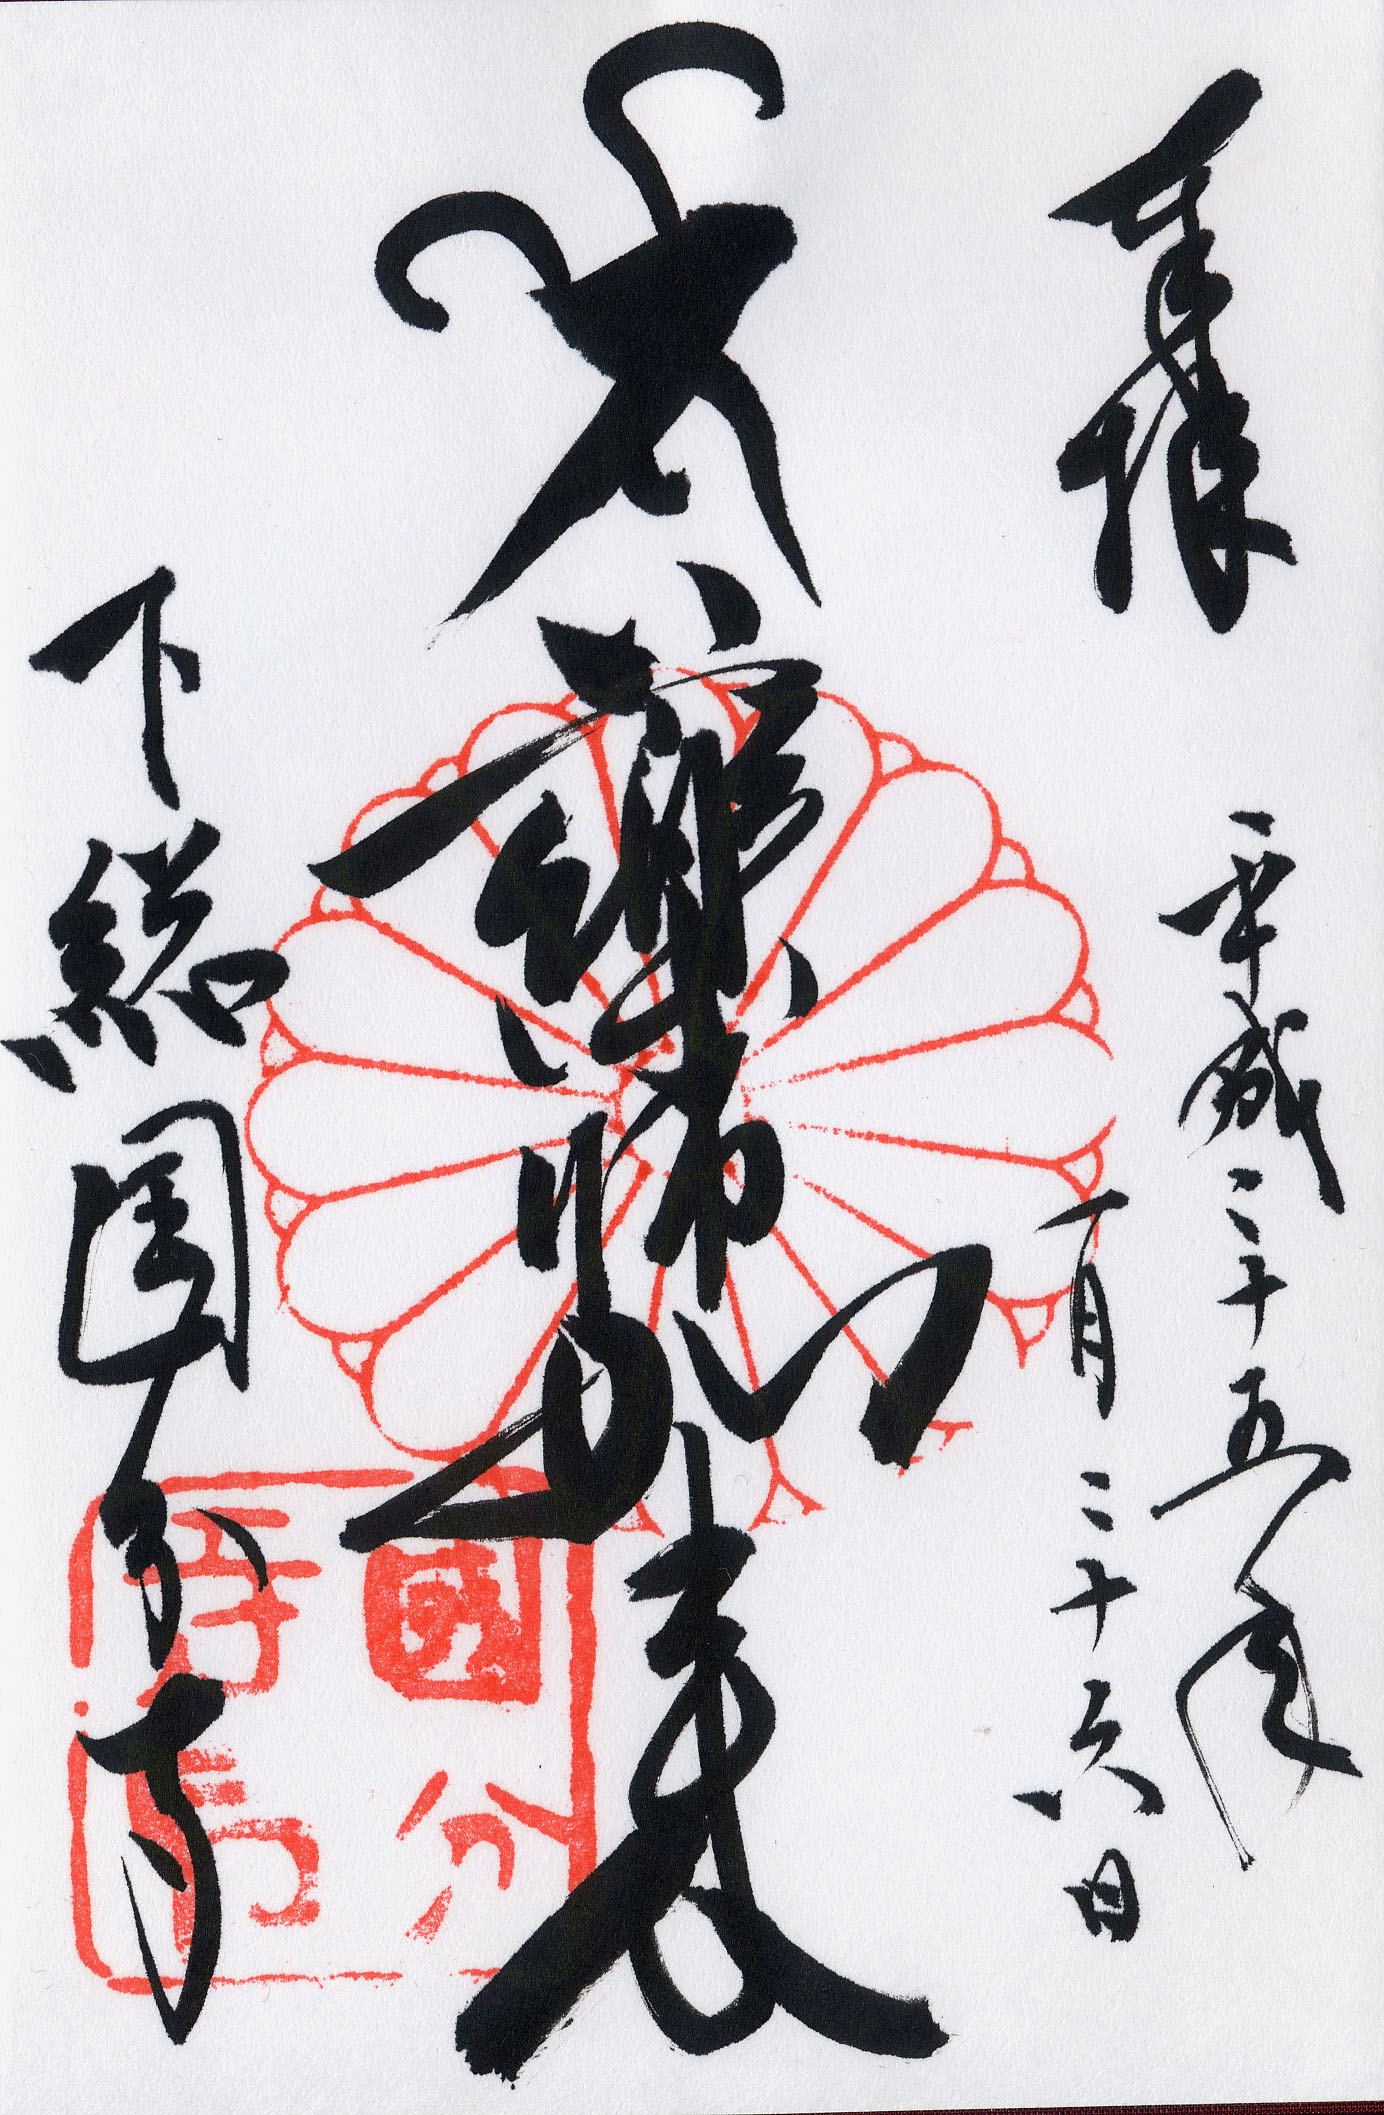 奉拝
平成二十五年
一月二十六日
薬師如来
下総国分寺
國分
寺印